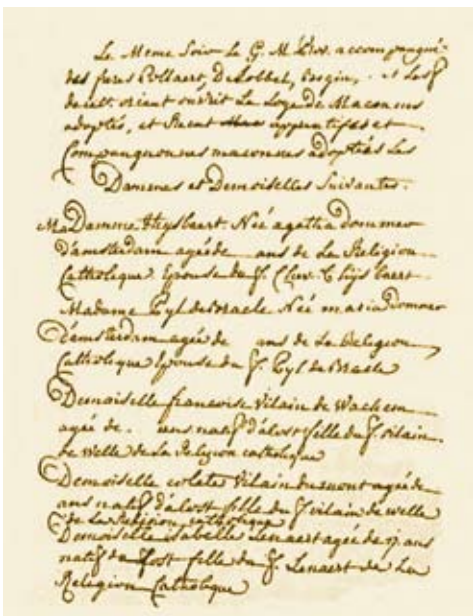 Le Meme Soir Le G. M. Prov. accompagné
des freres Pollaert, DeLobbel, Crogin, . et Les f
de cet. orient ouvrit La Loge de Macon nes
adoptés, et Recut apprentifes et
Compangnonnes maconnes adoptées Les
Dammes et Demoiselles Suivantes.
MaDamme Heysbaert. Neé agatha dommer
d'amsterdam agéede ans de La Religion
Catholique Epouse du f. C Heysbaert
Madame Pyl de Bracle Neé maria Dommer
d'emsterdam agée de ans de La Religion
Catholique Epouse du f. Pyl de Bracle
Demoiselle francoise Vilain de Wachem
agée de . ans natif d'alost fille du f. Vilain
de Welle de La Religion catholique
Demoiselle colete Vilain agée de
ans natif d'alost fille du f vilain de welle
de La Religion catholique
Demoiselle isabelle Lenaert agée de 17 ans
natif da Lost fille du f. Lenaert de La
Religion Catholique